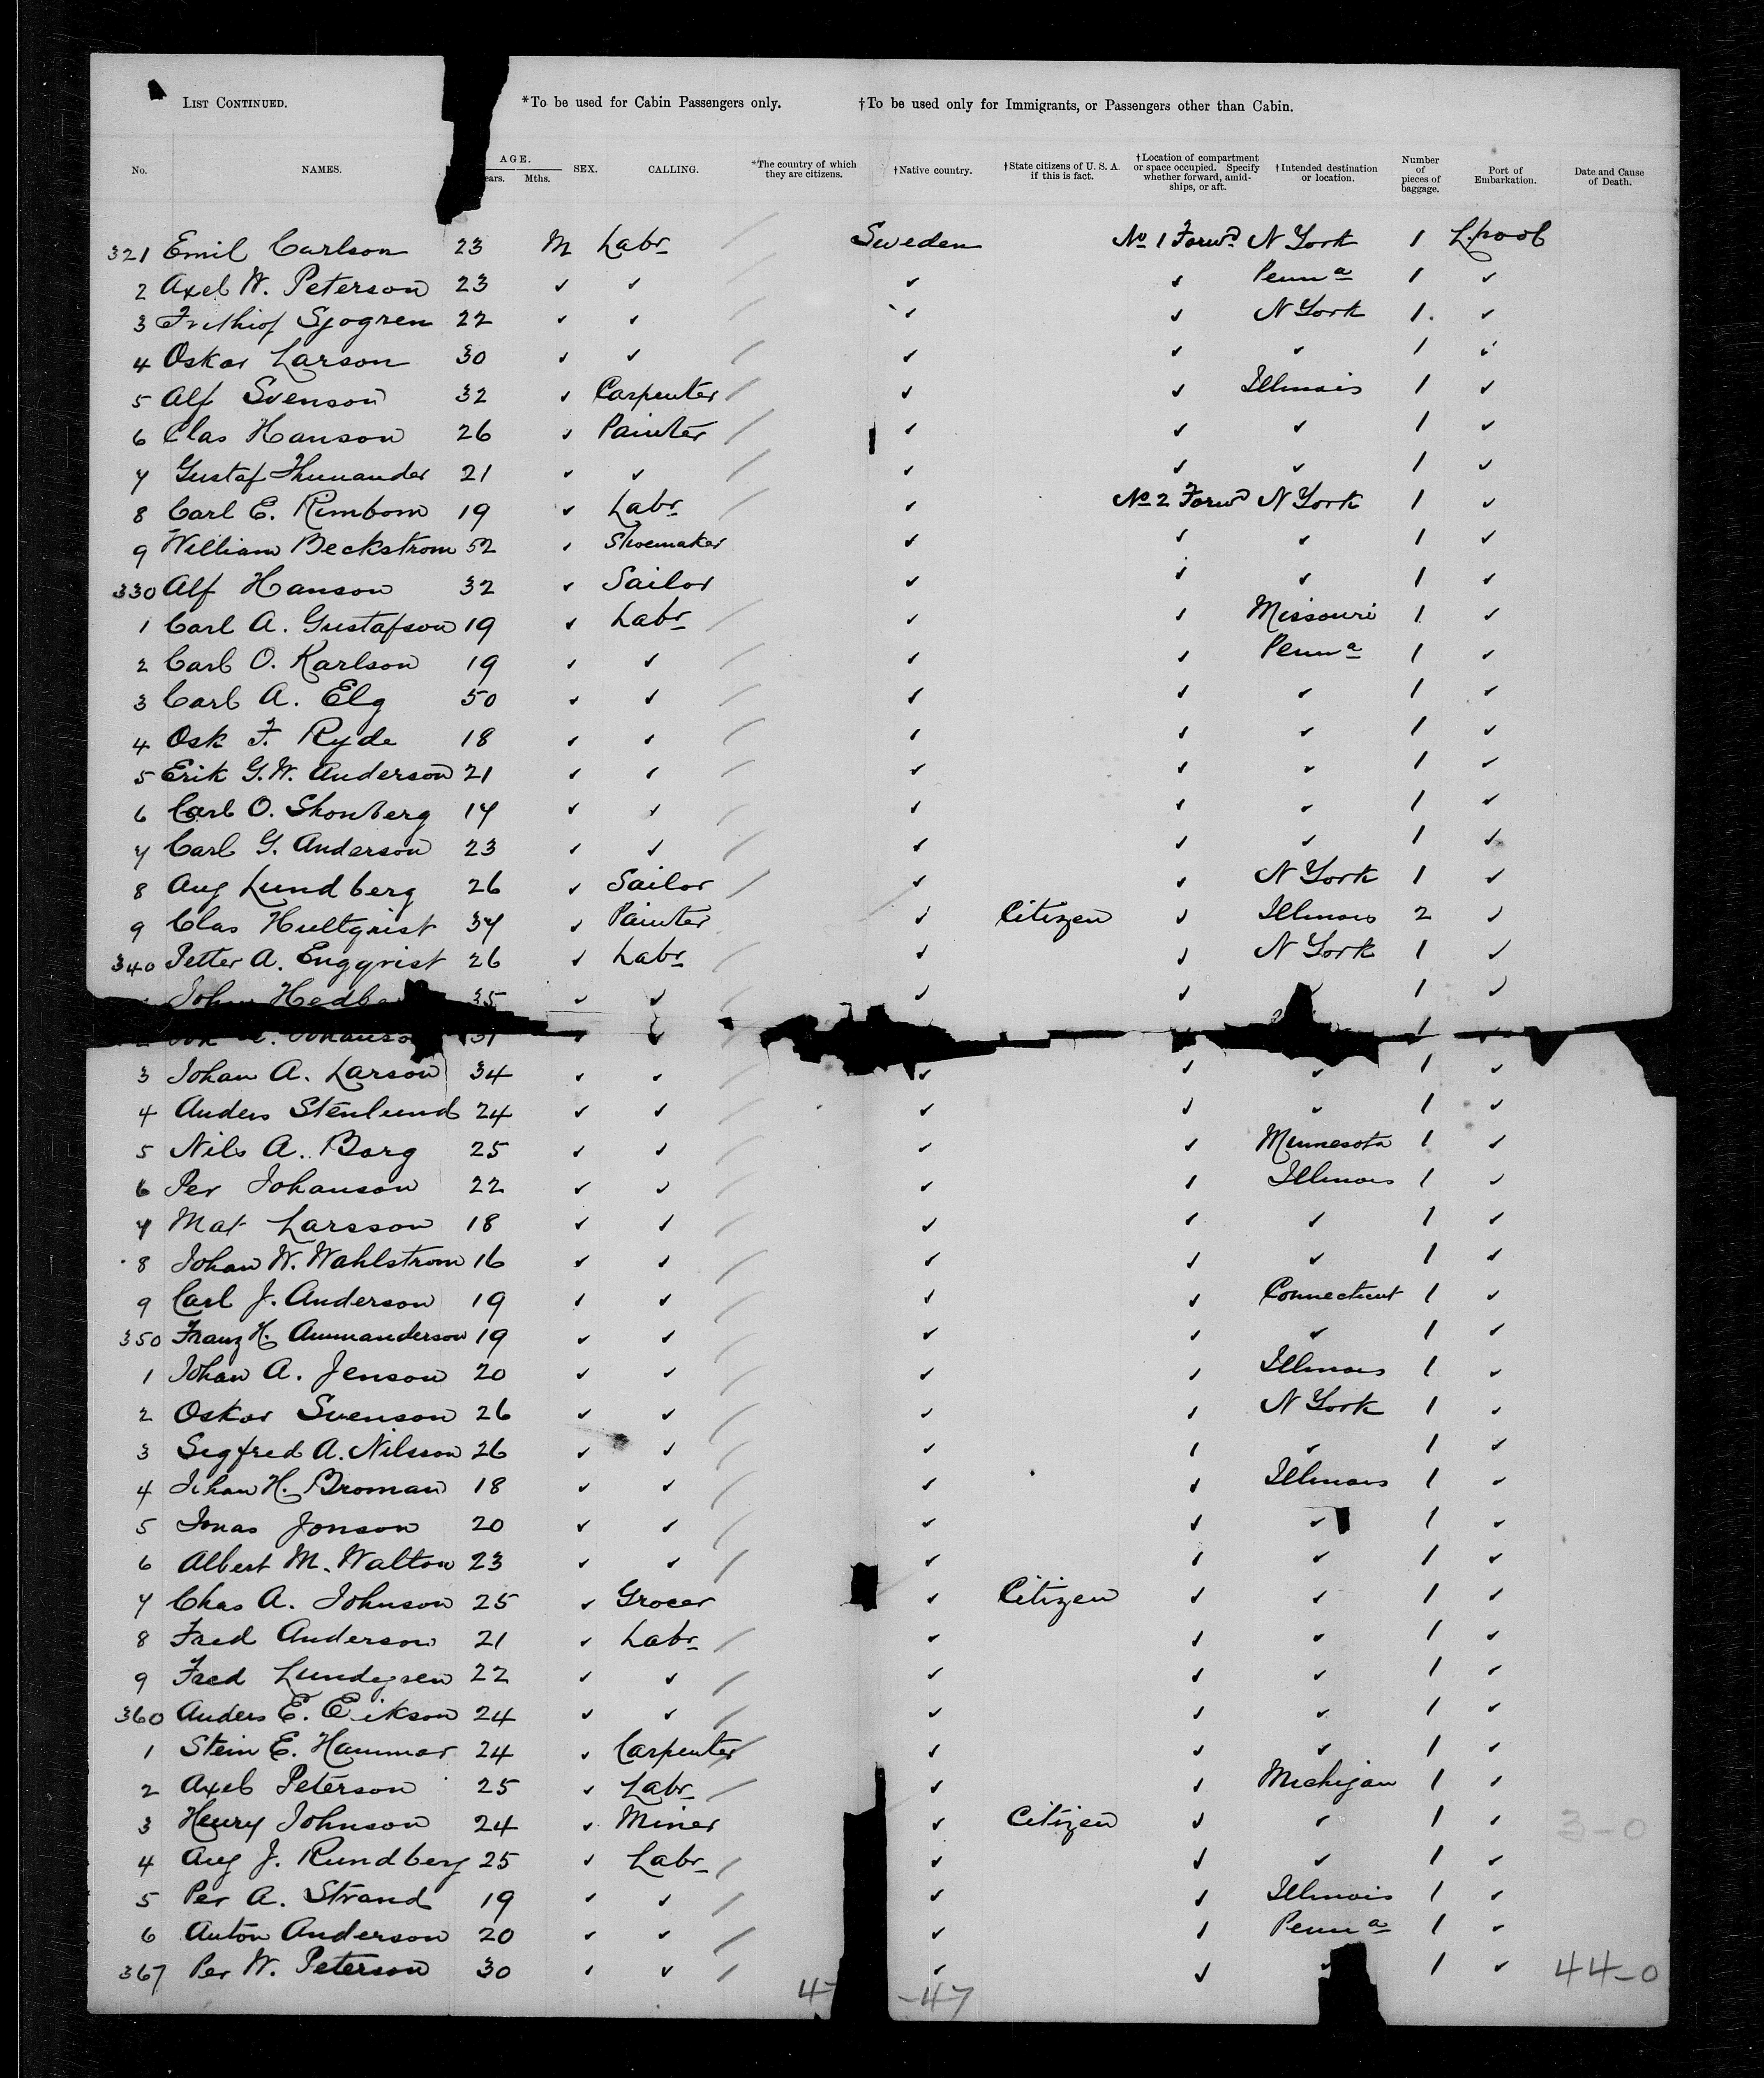 LIST CONTINUED. *To be used for Cabin Passengers only. †To be used only for Immigrants, or Passengers other than Cabin.
No. NAMES. AGE. ears. Mths. SEX. CALLING. *The country of which they are citizens. †Native country. †State citizens of U. S. A. if this is fact. †Location of compartment or space occupied. Specify whether forward, amidships, or aft. †Intended destination or location. Number of pieces of baggage. Port of Embarkation. Date and Cause of Death.
321 Emil Carlson 23 M Labr Sweden No 1 Forwd N York 1 L.pool
2 Axel W. Peterson 23 ✓ ✓ ✓ ✓ Penna 1 ✓
3 Frithiof Sjogren 22 ✓ ✓ ✓ ✓ N York 1. ✓
4 Oskar Larson 30 ✓ ✓ ✓ ✓ ✓ 1 ✓
5 Alf Svenson 32 ✓ Carpenter ✓ ✓ Illinois 1 ✓
6 Clas Hanson 26 ✓ Painter ✓ ✓ ✓ 1 ✓
7 Gustaf Thunander 21 ✓ ✓ ✓ ✓ ✓ 1 ✓
8 Carl E. Rimbom 19 ✓ Labr ✓ No 2 Forwd N York 1 ✓
9 William Beckstrom 52 ✓ Shoemaker ✓ ✓ ✓ 1 ✓
330 Alf Hanson 32 ✓ Sailor ✓ ✓ ✓ 1 ✓
1 Carl A. Gustafson 19 ✓ Labr ✓ ✓ Missouri 1 ✓
2 Carl O. Karlson 19 ✓ ✓ ✓ ✓ Penna 1 ✓
3 Carl A. Elg 50 ✓ ✓ ✓ ✓ ✓ 1 ✓
4 Osk F. Ryde 18 ✓ ✓ ✓ ✓ ✓ 1 ✓
5 Erik G.W. Anderson 21 ✓ ✓ ✓ ✓ ✓ 1 ✓
6 Carl O. Skonberg 17 ✓ ✓ ✓ ✓ ✓ 1 ✓
7 Carl G. Anderson 23 ✓ ✓ ✓ ✓ ✓ 1 ✓
8 Aug Lundberg 26 ✓ Sailor ✓ ✓ N York 1 ✓
9 Clas Hultqrist 37 ✓ Painter ✓ Citizen ✓ Illinois 2 ✓
340 Petter A. Engqrist 26 ✓ Labr ✓ ✓ N York 1 ✓
John Hedbe 35 ✓ ✓ ✓ ✓ 1 ✓
Johanso 31 ✓ ✓ ✓ 1 ✓
3 Johan A. Larson 34 ✓ ✓ ✓ ✓ ✓ 1 ✓
4 Anders Stenlund 24 ✓ ✓ ✓ ✓ ✓ 1 ✓
5 Nils A. Borg 25 ✓ ✓ ✓ ✓ Minnesota 1 ✓
6 Per Johanson 22 ✓ ✓ ✓ ✓ Illinois 1 ✓
7 Mat Larsson 18 ✓ ✓ ✓ ✓ ✓ 1 ✓
8 Johan W. Wahlstrom 16 ✓ ✓ ✓ ✓ ✓ 1 ✓
9 Carl J. Anderson 19 ✓ ✓ ✓ ✓ Connecticut 1 ✓
350 Franz H. Ammanderson 19 ✓ ✓ ✓ ✓ ✓ 1 ✓
1 Johan A. Jenson 20 ✓ ✓ ✓ ✓ Illinois 1 ✓
2 Oskar Svenson 26 ✓ ✓ ✓ ✓ N York 1 ✓
3 Segfred A. Nilsson 26 ✓ ✓ ✓ ✓ ✓ 1 ✓
4 Johan H. Broman 18 ✓ ✓ ✓ ✓ Illinois 1 ✓
5 Jonas Jonson 20 ✓ ✓ ✓ ✓ ✓ 1 ✓
6 Albert M. Walton 23 ✓ ✓ ✓ ✓ ✓ 1 ✓
7 Chas A. Johnson 25 ✓ Grocer ✓ Citizen ✓ ✓ 1 ✓
8 Fred Anderson 21 ✓ Labr ✓ ✓ ✓ 1 ✓
9 Fred Lundgren 22 ✓ ✓ ✓ ✓ ✓ 1 ✓
360 Anders E. Eikson 24 ✓ ✓ ✓ ✓ ✓ 1 ✓
1 Stein E. Hammar 24 ✓ Carpenter ✓ ✓ ✓ 1 ✓
2 Axel Peterson 25 ✓ Labr ✓ ✓ Michigan 1 ✓
3 Henry Johnson 24 ✓ Miner ✓ Citizen ✓ ✓ 1 ✓ 3-0
4 Aug J. Rundberg 25 ✓ Labr ✓ ✓ ✓ 1 ✓
5 Per A. Strand 19 ✓ ✓ ✓ ✓ Illinois 1 ✓
6 Anton Anderson 20 ✓ ✓ ✓ ✓ Penna 1 ✓
367 Per W. Peterson 30 ✓ ✓ ✓ ✓ ✓ 1 ✓ 44-0
47 -47